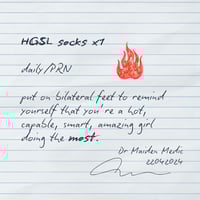 HGSL socks x1
daily/PRN
put on bilateral feet to remind
yourself that you're a hot,
capable, smart, amazing girl
doing the most.
Dr Maiden Medic
22042024